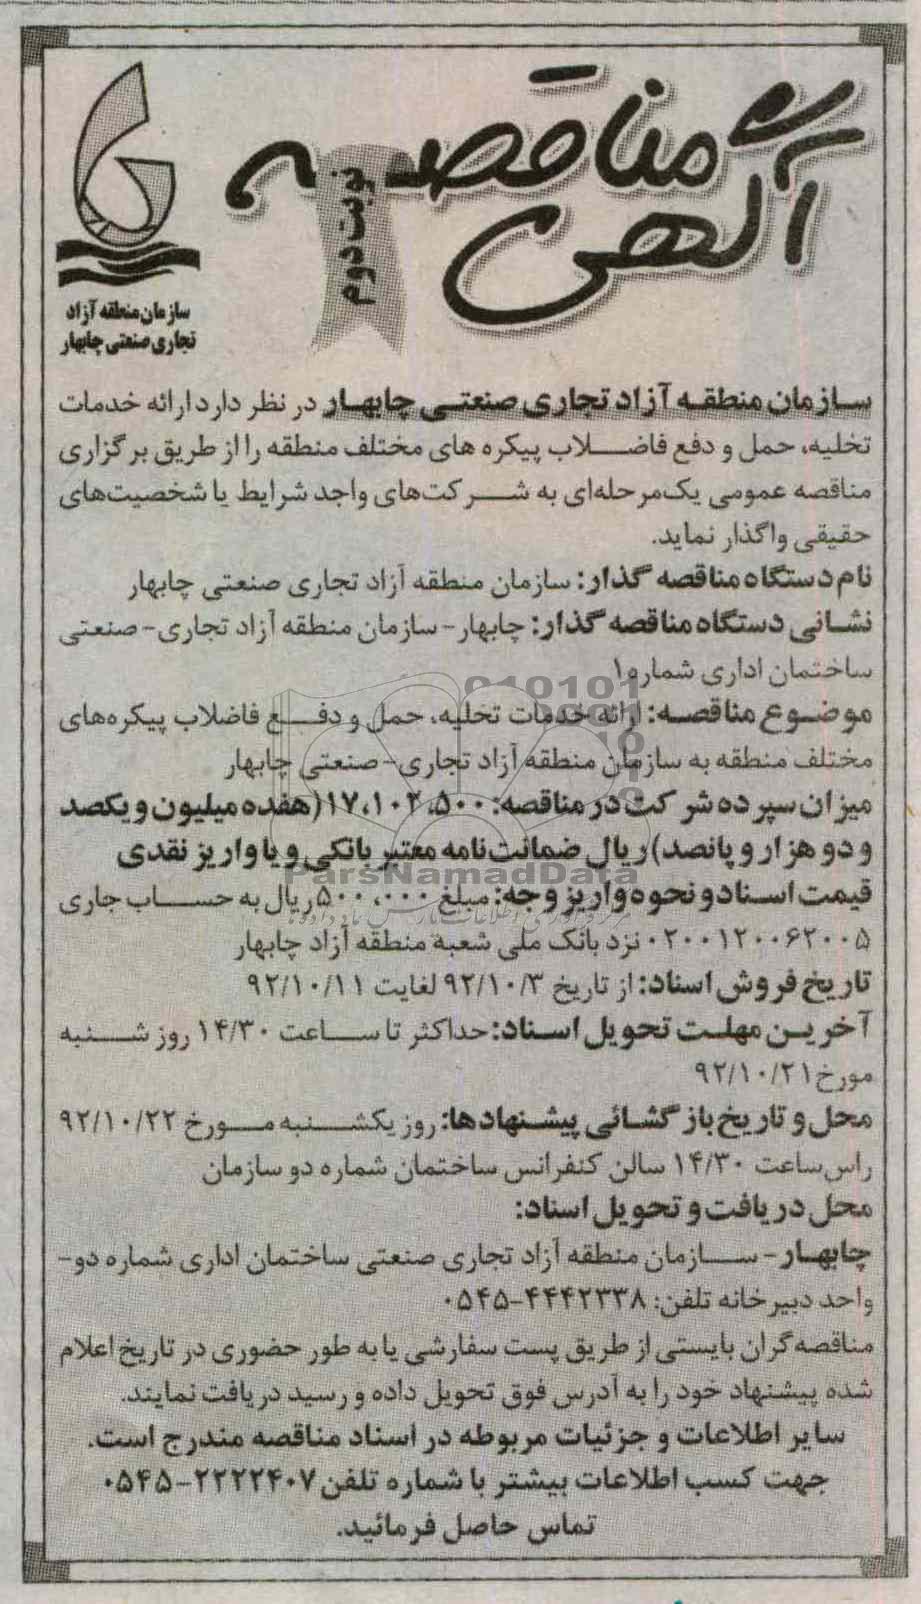 آگهی مناقصه
نوبت دوم
سازمان منطقه آزاد
تجاری صنعتی چابهار
سازمان منطقه آزاد تجاری صنعتی چابهار در نظر دارد ارائه خدمات
تخلیه، حمل و دفع فاضلاب پیکره های مختلف منطقه را از طریق برگزاری
مناقصه عمومی یک‌مرحله‌ای به شرکت‌های واجد شرایط یا شخصیت‌های
حقیقی واگذار نماید.
نام دستگاه مناقصه گذار: سازمان منطقه آزاد تجاری صنعتی چابهار
نشانی دستگاه مناقصه گذار: چابهار- سازمان منطقه آزاد تجاری- صنعتی
ساختمان اداری شماره ۱
موضوع مناقصه: ارائه خدمات تخلیه، حمل و دفع فاضلاب پیکره‌های
مختلف منطقه به سازمان منطقه آزاد تجاری- صنعتی چابهار
میزان سپرده شرکت در مناقصه: ۱۷،۱۰۲،۵۰۰ (هفده میلیون و یکصد
و دو هزار و پانصد) ریال ضمانت‌نامه معتبر بانکی و یا واریز نقدی
قیمت اسناد و نحوه واریز وجه: مبلغ ۵۰۰،۰۰۰ ریال به حساب جاری
۰۲۰۰۱۲۰۰۶۲۰۰۵ نزد بانک ملی شعبه منطقه آزاد چابهار
تاریخ فروش اسناد: از تاریخ ۹۲/۱۰/۳ لغایت ۹۲/۱۰/۱۱
آخرین مهلت تحویل اسناد: حداکثر تا ساعت ۱۴/۳۰ روز شنبه
مورخ ۹۲/۱۰/۲۱
محل و تاریخ بازگشائی پیشنهادها: روز یکشنبه مورخ ۹۲/۱۰/۲۲
راس ساعت ۱۴/۳۰ سالن کنفرانس ساختمان شماره دو سازمان
محل دریافت و تحویل اسناد:
چابهار - سازمان منطقه آزاد تجاری صنعتی ساختمان اداری شماره دو-
واحد دبیرخانه تلفن: ۴۴۴۲۳۳۸-۰۵۴۵
مناقصه‌گران بایستی از طریق پست سفارشی یا به طور حضوری در تاریخ اعلام
شده پیشنهاد خود را به آدرس فوق تحویل داده و رسید دریافت نمایند.
سایر اطلاعات و جزئیات مربوطه در اسناد مناقصه مندرج است.
جهت کسب اطلاعات بیشتر با شماره تلفن ۲۲۲۲۴۰۷-۰۵۴۵
تماس حاصل فرمائید.
ParsNamadData